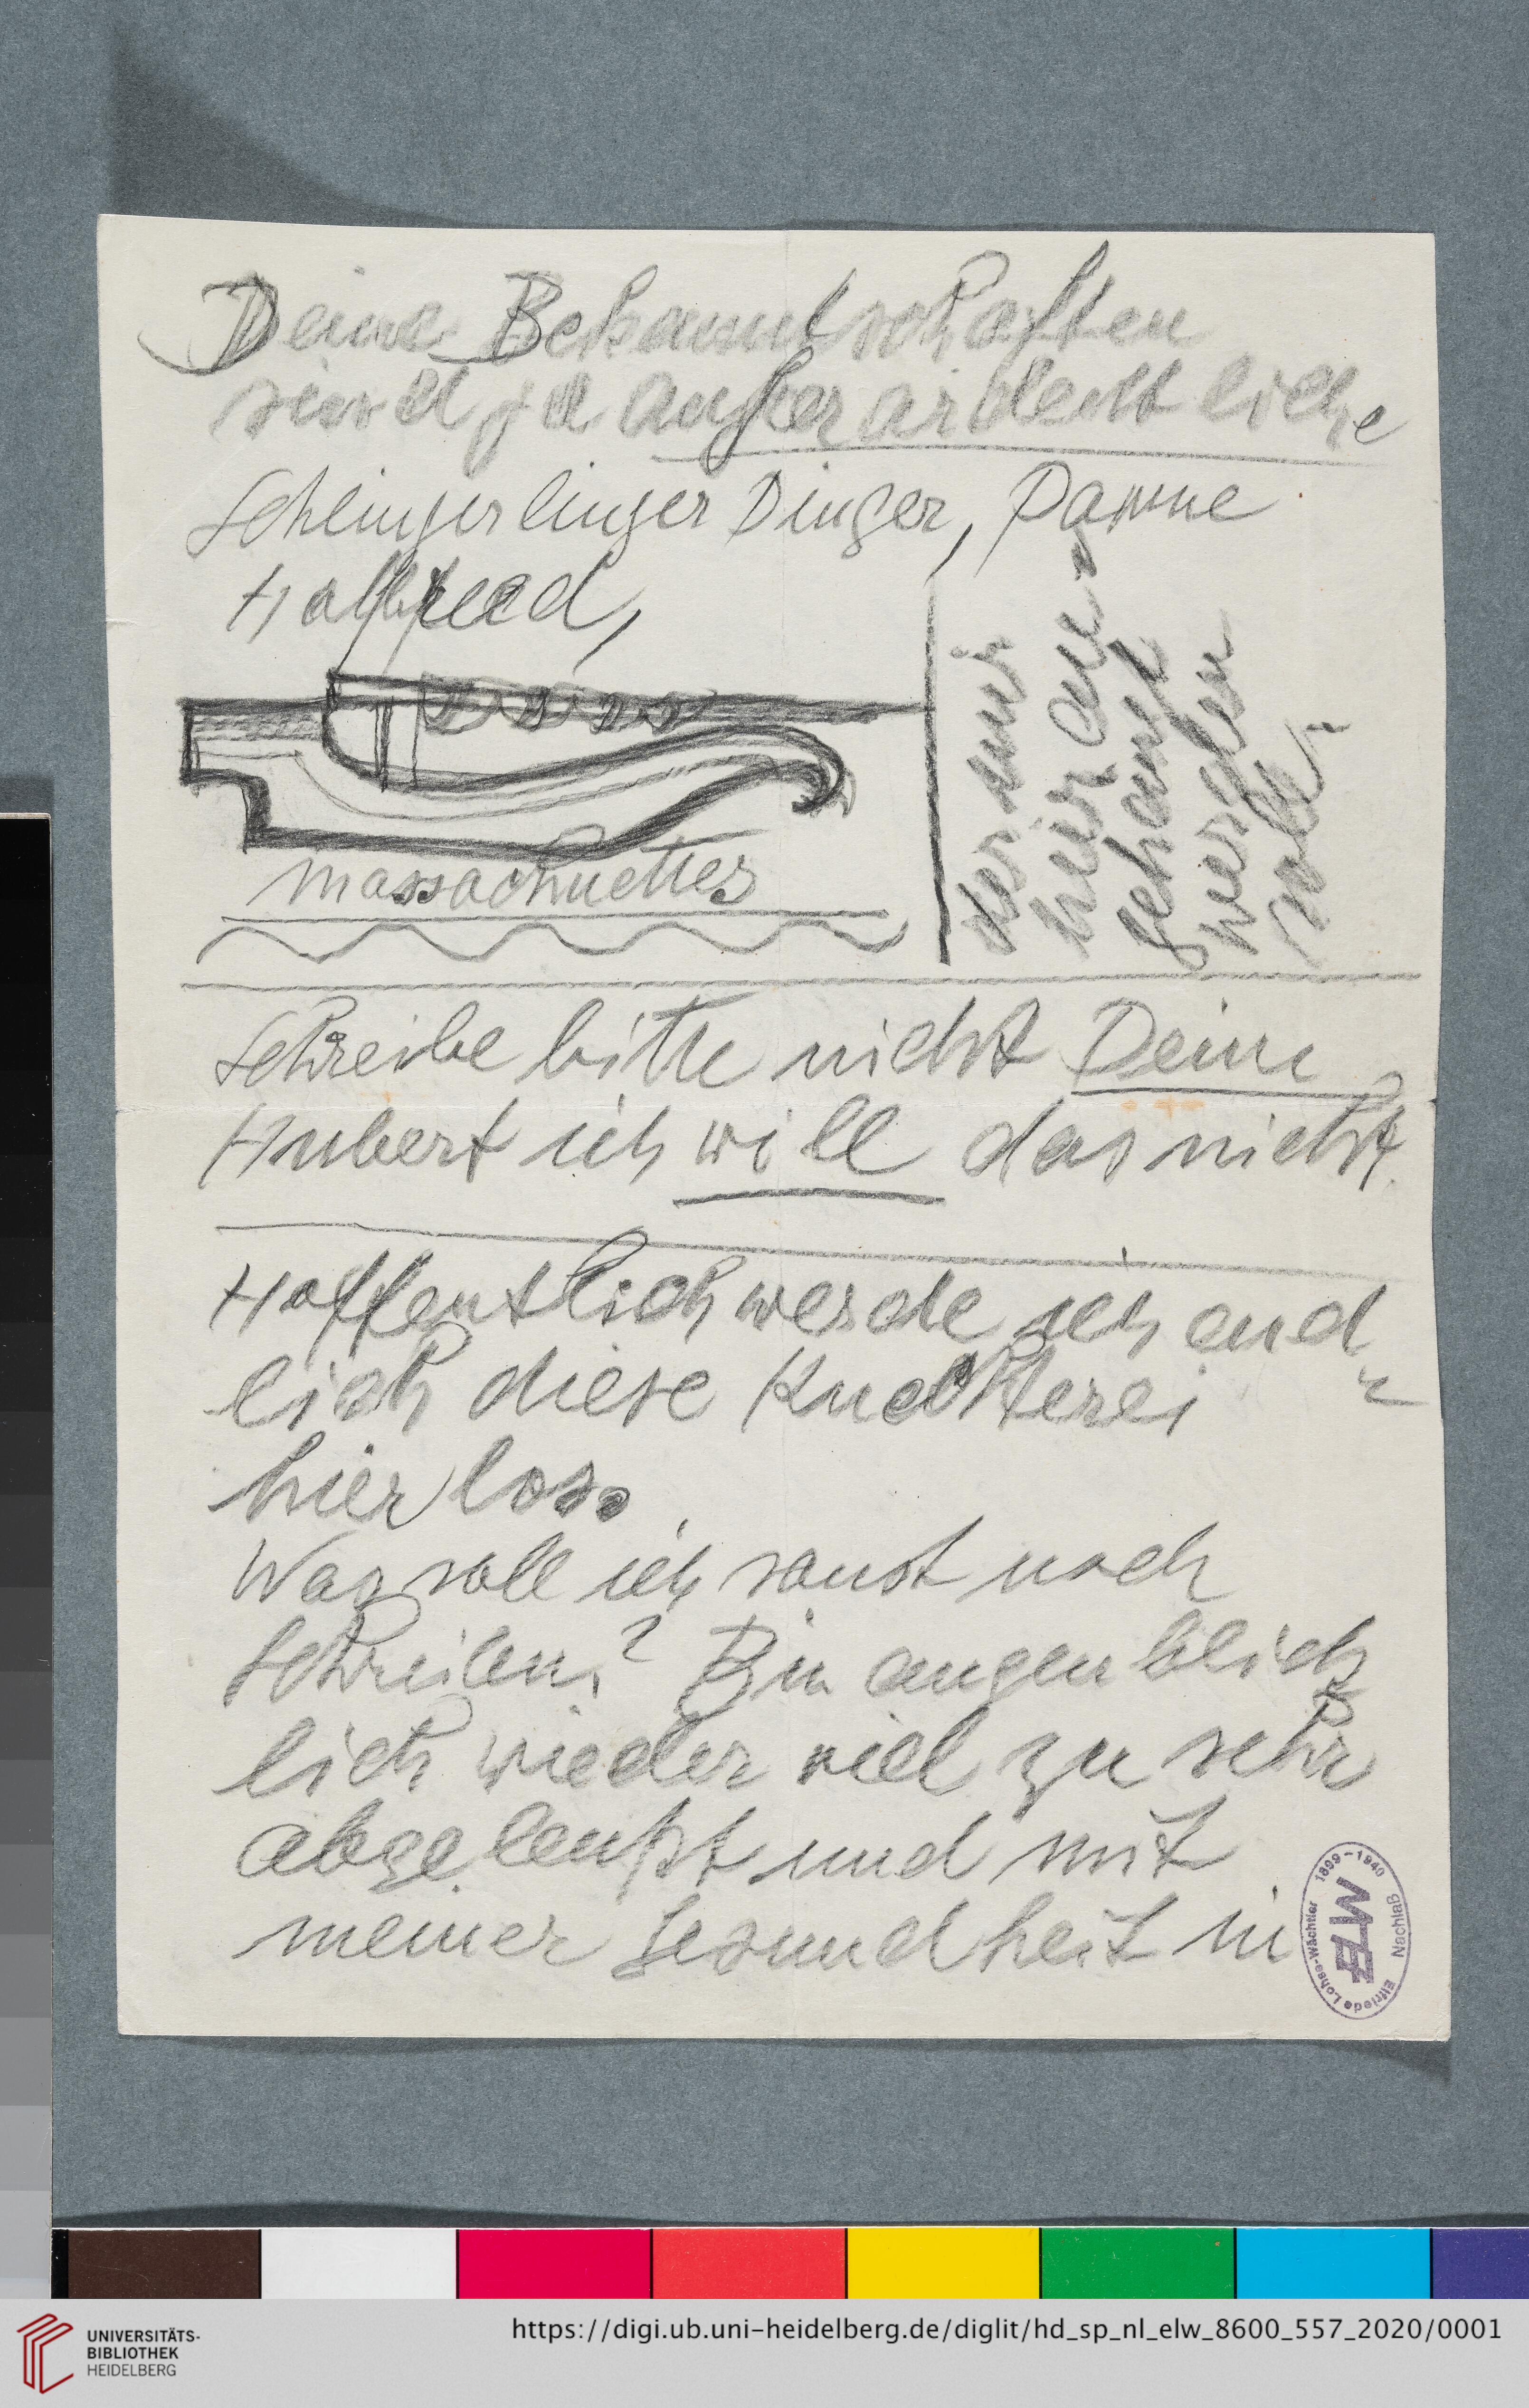 Deine Bekanntschaften
sind ja außerordentliche
Schlingerlinger Dinger, Panne
der mir
hier an-
gehängt
werden
soll!
Massachuettes
Schreibe bitte nicht Deine
Hubert ich will das nicht.
Hoffentlich werde ich end
lich diese Kuddlerei
hier los.
Was soll ich sonst noch
schreiben? Bin augenblick
lich wieder viel zu sehr
abge und mit
meiner Gesundheit in
Elfriede Lohse-Wächtler 1899-1940
ELW
Nachlaß
UNIVERSITÄTS-
BIBLIOTHEK
HEIDELBERG
https://digi.ub.uni-heidelberg.de/diglit/hd_sp_nl_elw_8600_557_2020/0001